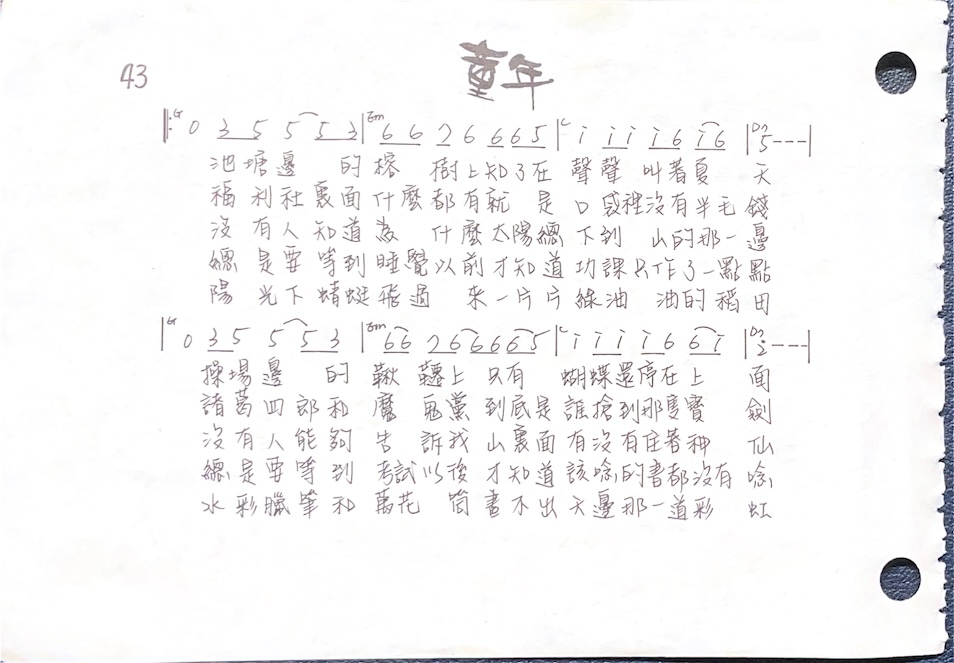 童年
43
G 0 3 5 5 5 3 | Em 6 6 2 6 6 6 5 | C i i i i 6 i 6 | D7 5 - - - |
池塘邊 的榕 樹上知了在 聲聲 叫着夏 天
福利社裏面什麼都有就 是 口袋裡沒有半毛錢
沒有人知道為 什麼太陽總 下到 山的那一邊
總是要等到睡覺以前才知道功課只作了一點點
陽 光下蜻蜓飛過 來一片片綠油 油的稻田
G 0 3 5 5 5 3 | Em 6 6 2 6 6 6 6 5 | C i i i i 6 6 i | D7 2 - - - |
操場邊 的 鞦 韆上 只有 蝴蝶還停在上 面
諸葛四郎和 魔 鬼黨到底是誰搶到那隻寶 劍
沒有人能夠 告 訴我 山裏面有沒有住著神 仙
總是要等到 考試以後 才知道該唸的書都沒有唸
水彩臘筆和 萬花 筒 畫不出天邊那一道彩 虹